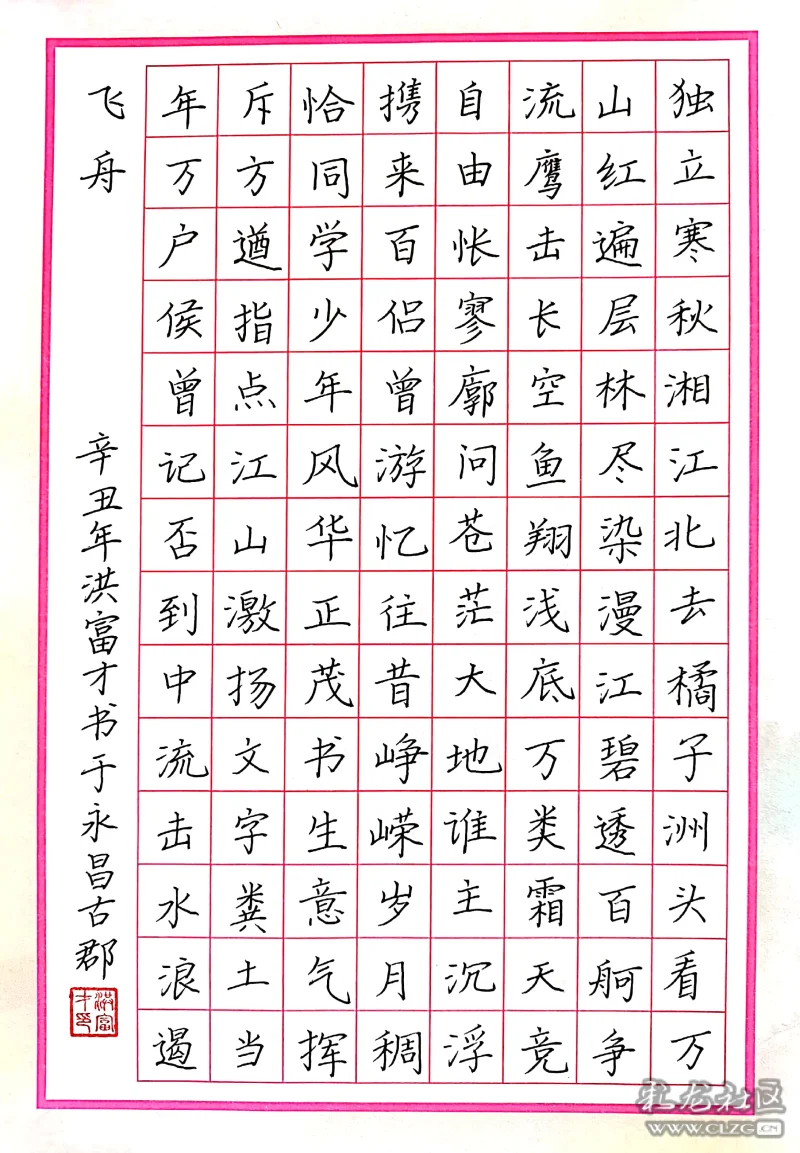 独立寒秋湘江北去橘子洲头看万
山红遍层林尽染漫江碧透百舸争
流鹰击长空鱼翔浅底万类霜天竞
自由怅寥廓问苍茫大地谁主沉浮
携来百侣曾游忆往昔峥嵘岁月稠
恰同学少年风华正茂书生意气挥
斥方遒指点江山激扬文字粪土当
年万户侯曾记否到中流击水浪遏
飞舟
辛丑年洪富才书于永昌古郡
洪富才印
彩龙社区
WWW.CLZG.CN